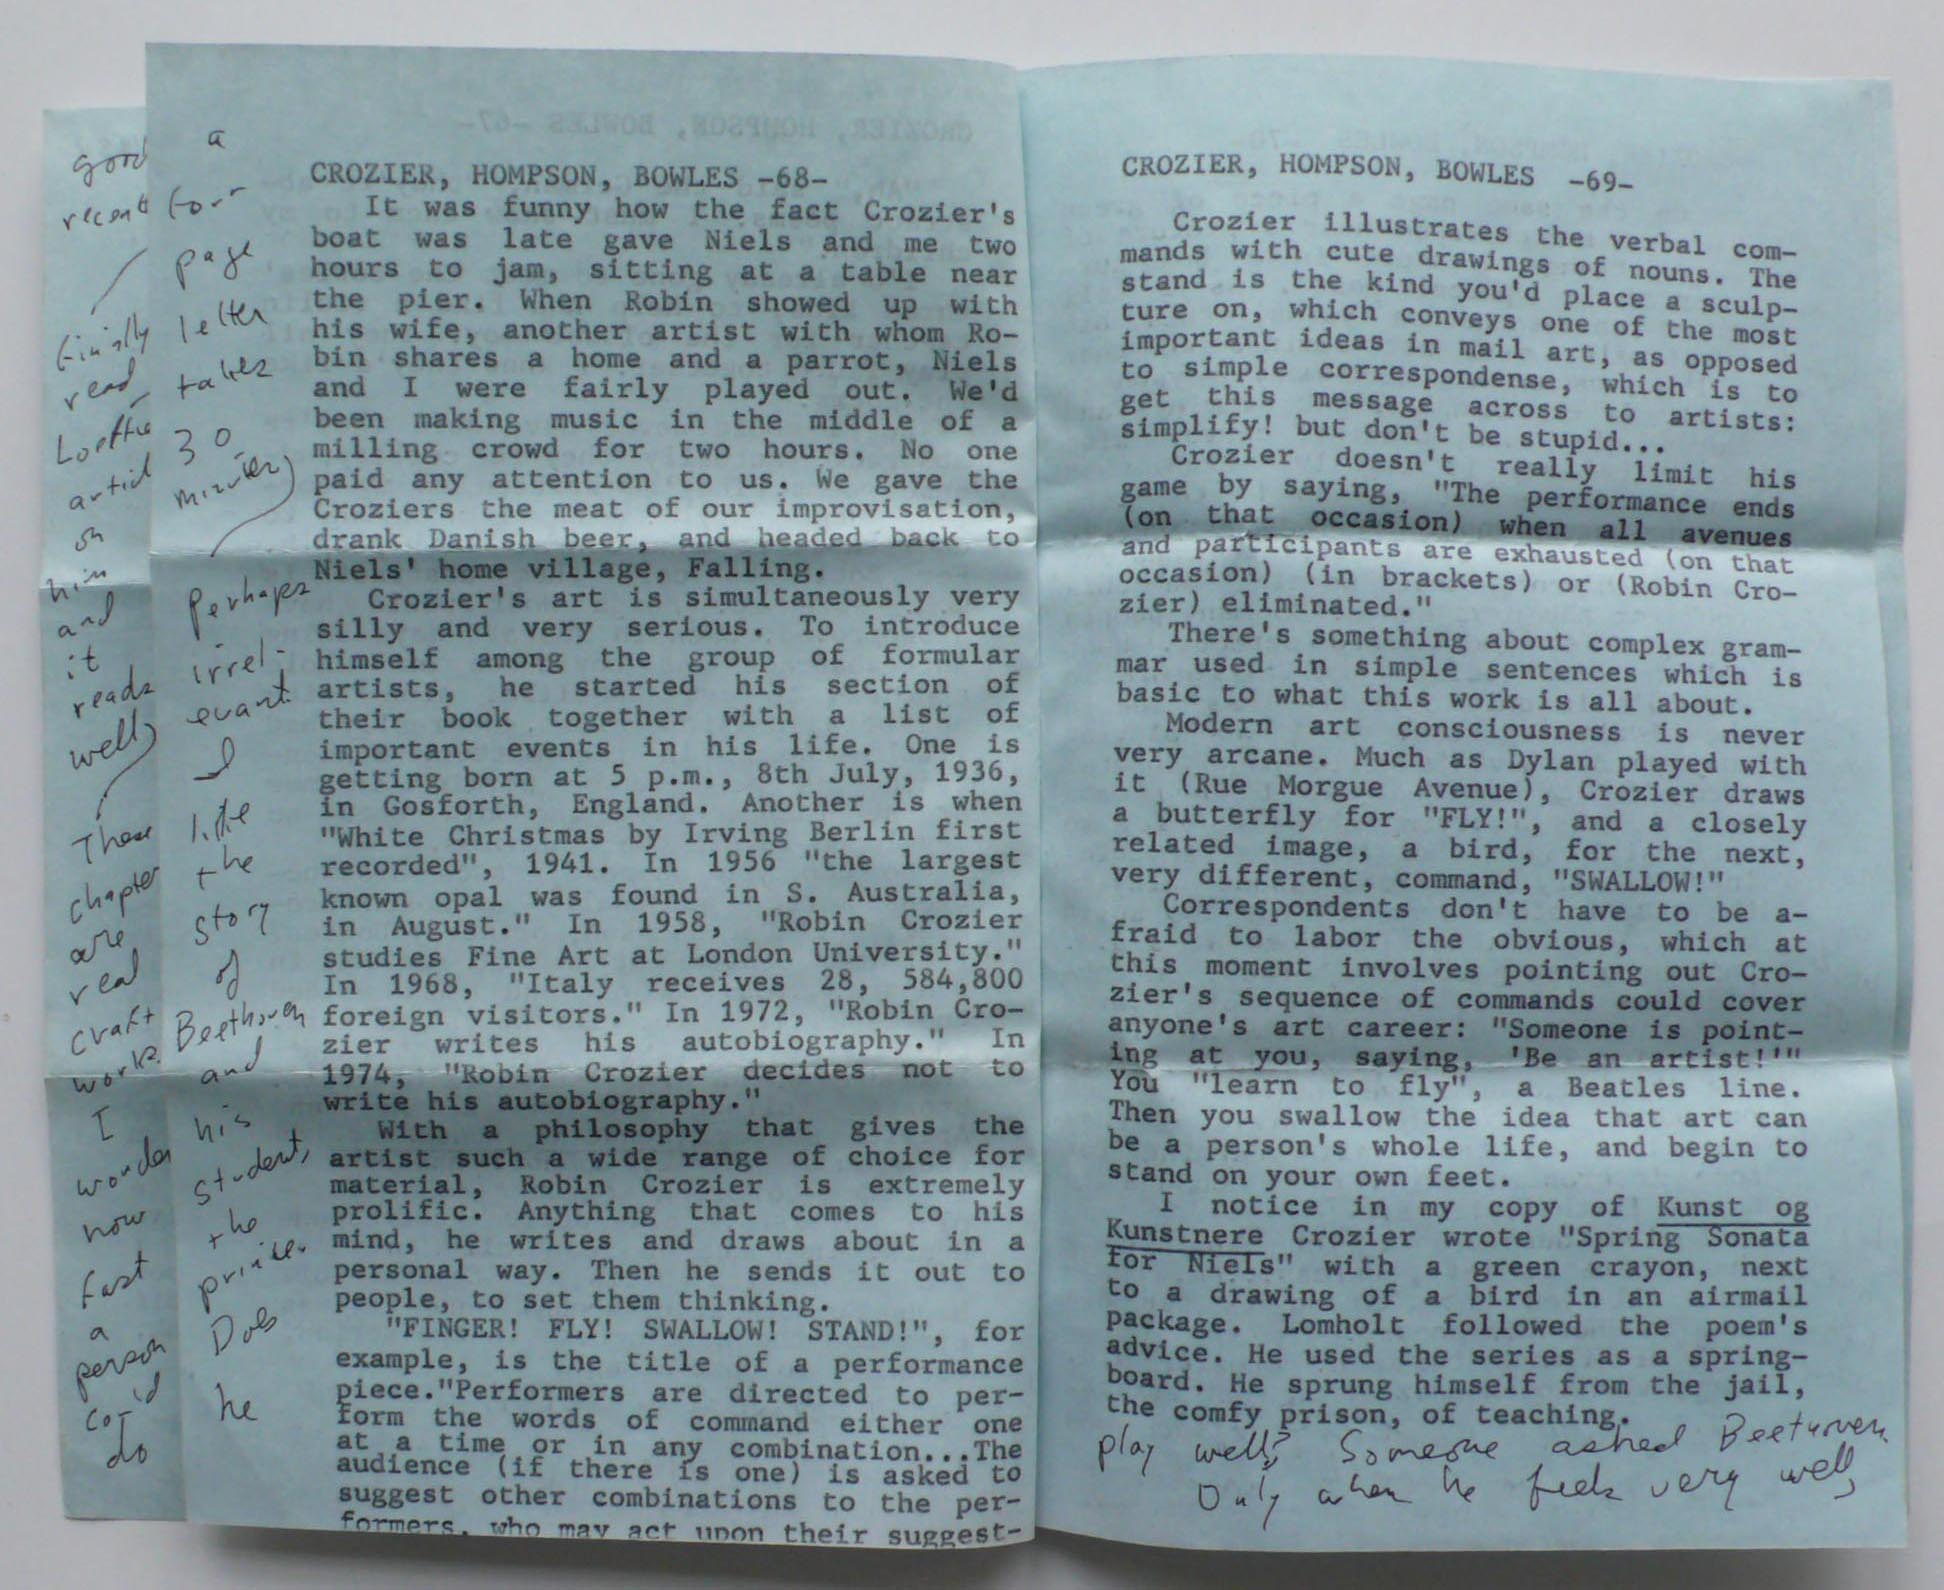 good
recent
finally
read
on
him
and
it
reads
well)
These
chapter
are
real
craft
works.
I
wonder
how
fast
a
person
do
a
four
page
letter
takes
30
minutes)
Perhaps
irrel-
evant.
I
like
the
story
of
Beethoven
and
his
student,
the
prince.
Does
he
CROZIER, HOMPSON, BOWLES -68-
It was funny how the fact Crozier's
boat was late gave Niels and me two
hours to jam, sitting at a table near
the pier. When Robin showed up with
his wife, another artist with whom Ro-
bin shares a home and a parrot, Niels
and I were fairly played out. We'd
been making music in the middle of a
milling crowd for two hours. No one
paid any attention to us. We gave the
Croziers the meat of our improvisation,
drank Danish beer, and headed back to
Niels' home village, Falling.
Crozier's art is simultaneously very
silly and very serious. To introduce
himself among the group of formular
artists, he started his section of
their book together with a list of
important events in his life. One is
getting born at 5 p.m., 8th July, 1936,
in Gosforth, England. Another is when
"White Christmas by Irving Berlin first
recorded", 1941. In 1956 "the largest
known opal was found in S. Australia,
in August." In 1958, "Robin Crozier
studies Fine Art at London University."
In 1968, "Italy receives 28, 584,800
foreign visitors." In 1972, "Robin Cro-
zier writes his autobiography." In
1974, "Robin Crozier decides not to
write his autobiography."
With a philosophy that gives the
artist such a wide range of choice for
material, Robin Crozier is extremely
prolific. Anything that comes to his
mind, he writes and draws about in a
personal way. Then he sends it out to
people, to set them thinking.
"FINGER! FLY! SWALLOW! STAND!", for
example, is the title of a performance
piece."Performers are directed to per-
form the words of command either one
at a time or in any combination...The
audience (if there is one) is asked to
suggest other combinations to the per-
formers, who may act upon their suggest-
CROZIER, HOMPSON, BOWLES -69-
Crozier illustrates the verbal com-
mands with cute drawings of nouns. The
stand is the kind you'd place a sculp-
ture on, which conveys one of the most
important ideas in mail art, as opposed
to simple correspondense, which is to
get this message across to artists:
simplify! but don't be stupid...
Crozier doesn't really limit his
game by saying, "The performance ends
(on that occasion) when all avenues
and participants are exhausted (on that
occasion) (in brackets) or (Robin Cro-
zier) eliminated."
There's something about complex gram-
mar used in simple sentences which is
basic to what this work is all about.
Modern art consciousness is never
very arcane. Much as Dylan played with
it (Rue Morgue Avenue), Crozier draws
a butterfly for "FLY!", and a closely
related image, a bird, for the next,
very different, command, "SWALLOW!"
Correspondents don't have to be a-
fraid to labor the obvious, which at
this moment involves pointing out Cro-
zier's sequence of commands could cover
anyone's art career: "Someone is point-
ing at you, saying, 'Be an artist!'"
You "learn to fly", a Beatles line.
Then you swallow the idea that art can
be a person's whole life, and begin to
stand on your own feet.
I notice in my copy of Kunst og
Kunstnere Crozier wrote "Spring Sonata
for Niels" with a green crayon, next
to a drawing of a bird in an airmail
package. Lomholt followed the poem's
advice. He used the series as a spring-
board. He sprung himself from the jail,
the comfy prison, of teaching.
play well? Someone asked Beethoven.
Only when he feels very well,